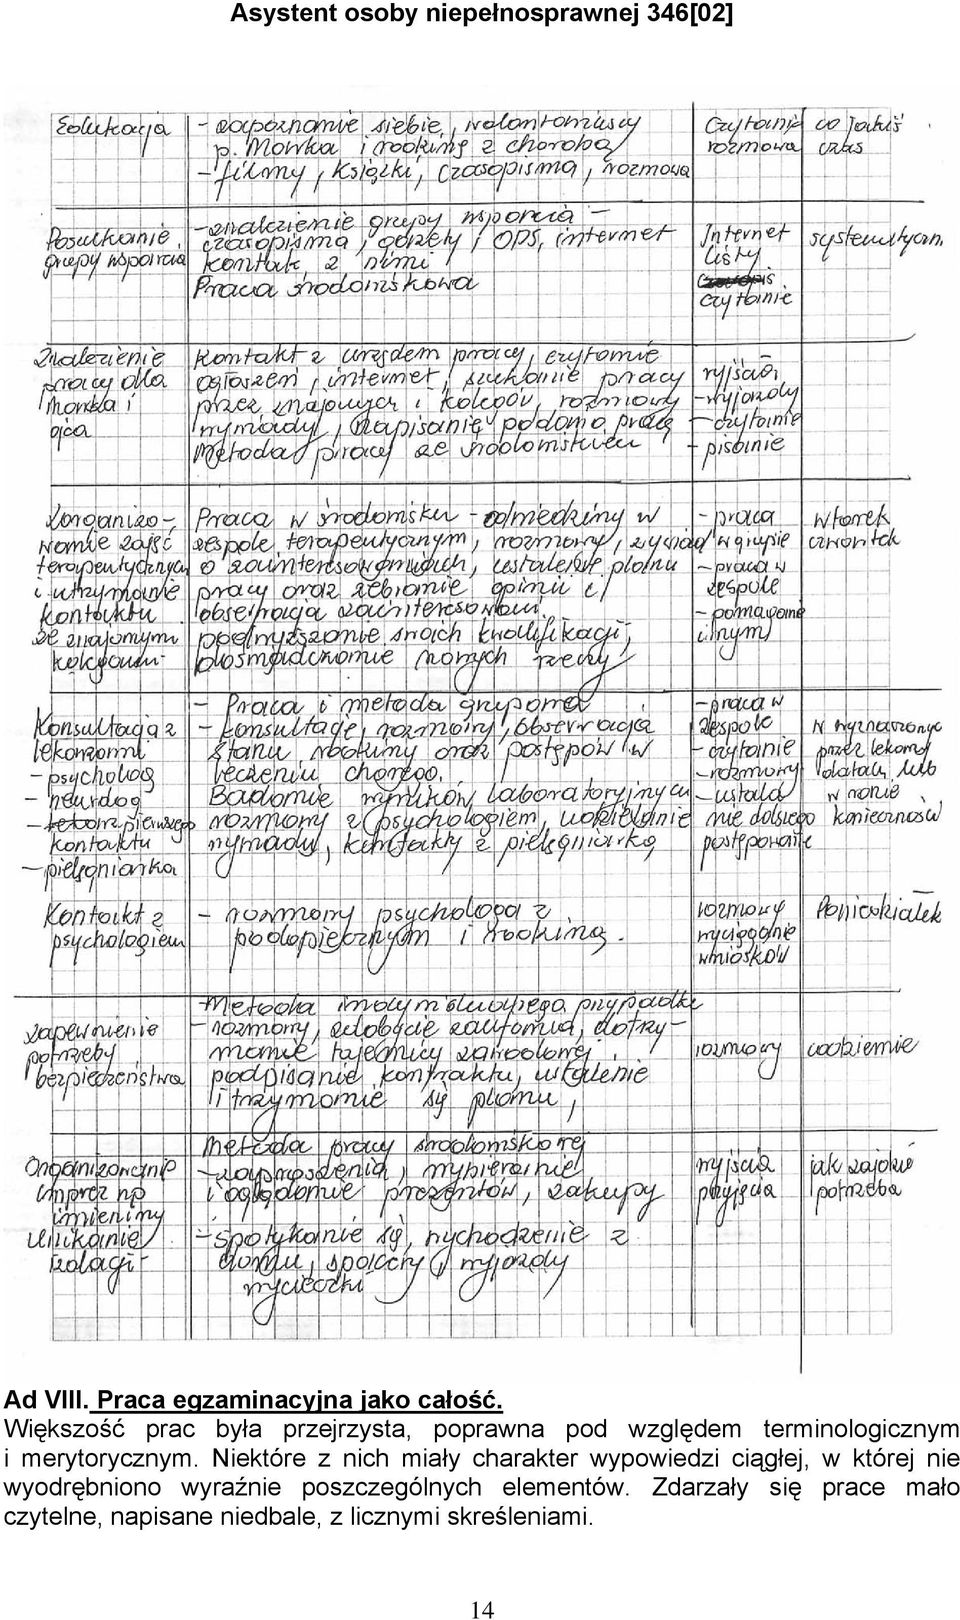 Asystent osoby niepełnosprawnej 346[02]
Edukacja
- zapoznanie siebie, wolontariuszy
p. Marka i rodziny z chorobą
- filmy, książki, czasopisma, rozmowa
Czytanie
rozmowa
co jakiś
czas
Poszukanie
grupy wsparcia
- znalezienie grupy wsparcia -
czasopisma, gazety, OPS, internet
kontakt z nimi
Praca środowiskowa
Internet
listy
czytanie
systematyczn.
Znalezienie
pracy dla
Marka i
ojca
Kontakt z urzędem pracy, czytanie
ogłoszeń, internet, szukanie pracy
przez znajomych i kolegów, rozmowy
wywiady, napisanie podania o pracę
Metoda pracy ze środowiskiem
- wyjazdy
- czytanie
- pisanie
Zorganizo-
wanie zajęć
terapeutycznych
i utrzymanie
kontaktu
ze znajomymi
kolegami
Praca w środowisku - odwiedziny w
zespole terapeutycznym, rozmowy, wywiad
o zainteresowaniach, ustalenie planu
pracy oraz zebranie opinii i
obserwacja zainteresowań,
podwyższanie swoich kwalifikacji,
doświadczanie nowych rzeczy
- praca
w grupie
- praca w
zespole
- pomaganie
innym
wtorek
czwartek
Konsultacja z
lekarzami
- psycholog
- neurolog
kontaktu
- pielęgniarka
- Praca i metoda grupowa
- konsultacje, rozmowy, obserwacja
stanu rodziny oraz postępów w
leczeniu chorego.
Badanie wyników laboratoryjnych
rozmowy z psychologiem, udzielanie
wywiadu, kontakty z pielęgniarką
- praca w
zespole
- czytanie
- rozmowy
- ustala
nie dalszego
postępowanie
w wyznaczonych
przez lekarzy
datach lub
w razie
konieczności
Kontakt z
psychologiem
- rozmowy psychologa z
podopiecznym i rodziną.
rozmowy
wyciąganie
wniosków
Poniedziałek
zapewnienie
potrzeby
bezpieczeństwa
- Metoda indywidualnego przypadku
- rozmowy, zdobycie zaufania, dotrzy-
manie tajemnicy zawodowej.
podpisanie kontraktu, ustalenie
i trzymanie się planu,
rozmowy
codziennie
Organizowanie
imprez np
imieniny
unikanie
izolacji
Metoda pracy środowiskowej
- zaproszenia, wybieranie
i oglądanie prezentów, zakupy
- spotykanie się, wychodzenie z
domu, spacery, wyjazdy
wycieczki
wyjścia
przyjęcia
jak zajdzie
potrzeba
Ad VIII. Praca egzaminacyjna jako całość.
Większość prac była przejrzysta, poprawna pod względem terminologicznym
i merytorycznym. Niektóre z nich miały charakter wypowiedzi ciągłej, w której nie
wyodrębniono wyraźnie poszczególnych elementów. Zdarzały się prace mało
czytelne, napisane niedbale, z licznymi skreśleniami.
14